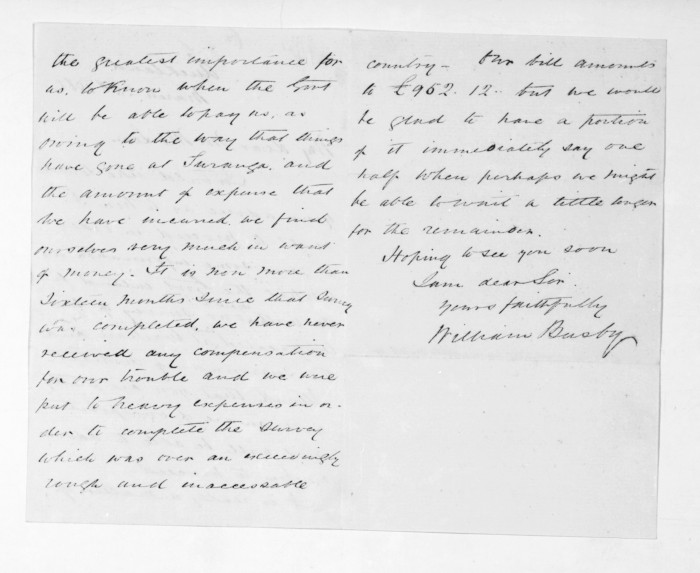 the greatest importance for
us, to know when the Govt
will be able to pay us, as
owing to the way that things
have gone at Turanga, and
the amount of expense that
we have incurred we find
ourselves very much in want
of money. It is now more than
sixteen months since that survey
was completed, we have never
received any compensation
for our trouble and we were
put to heavy expenses in or-
der to complete the survey
which was over an exceedingly
rough and inaccessable
country - Our bill amounts
to £952.12 - but we would
be glad to have a portion
of it immediately say one
half when perhaps we might
be able to wait a little longer
for the remainder.
Hoping to see you soon
I am dear Sir
Yours faithfully
William Busby